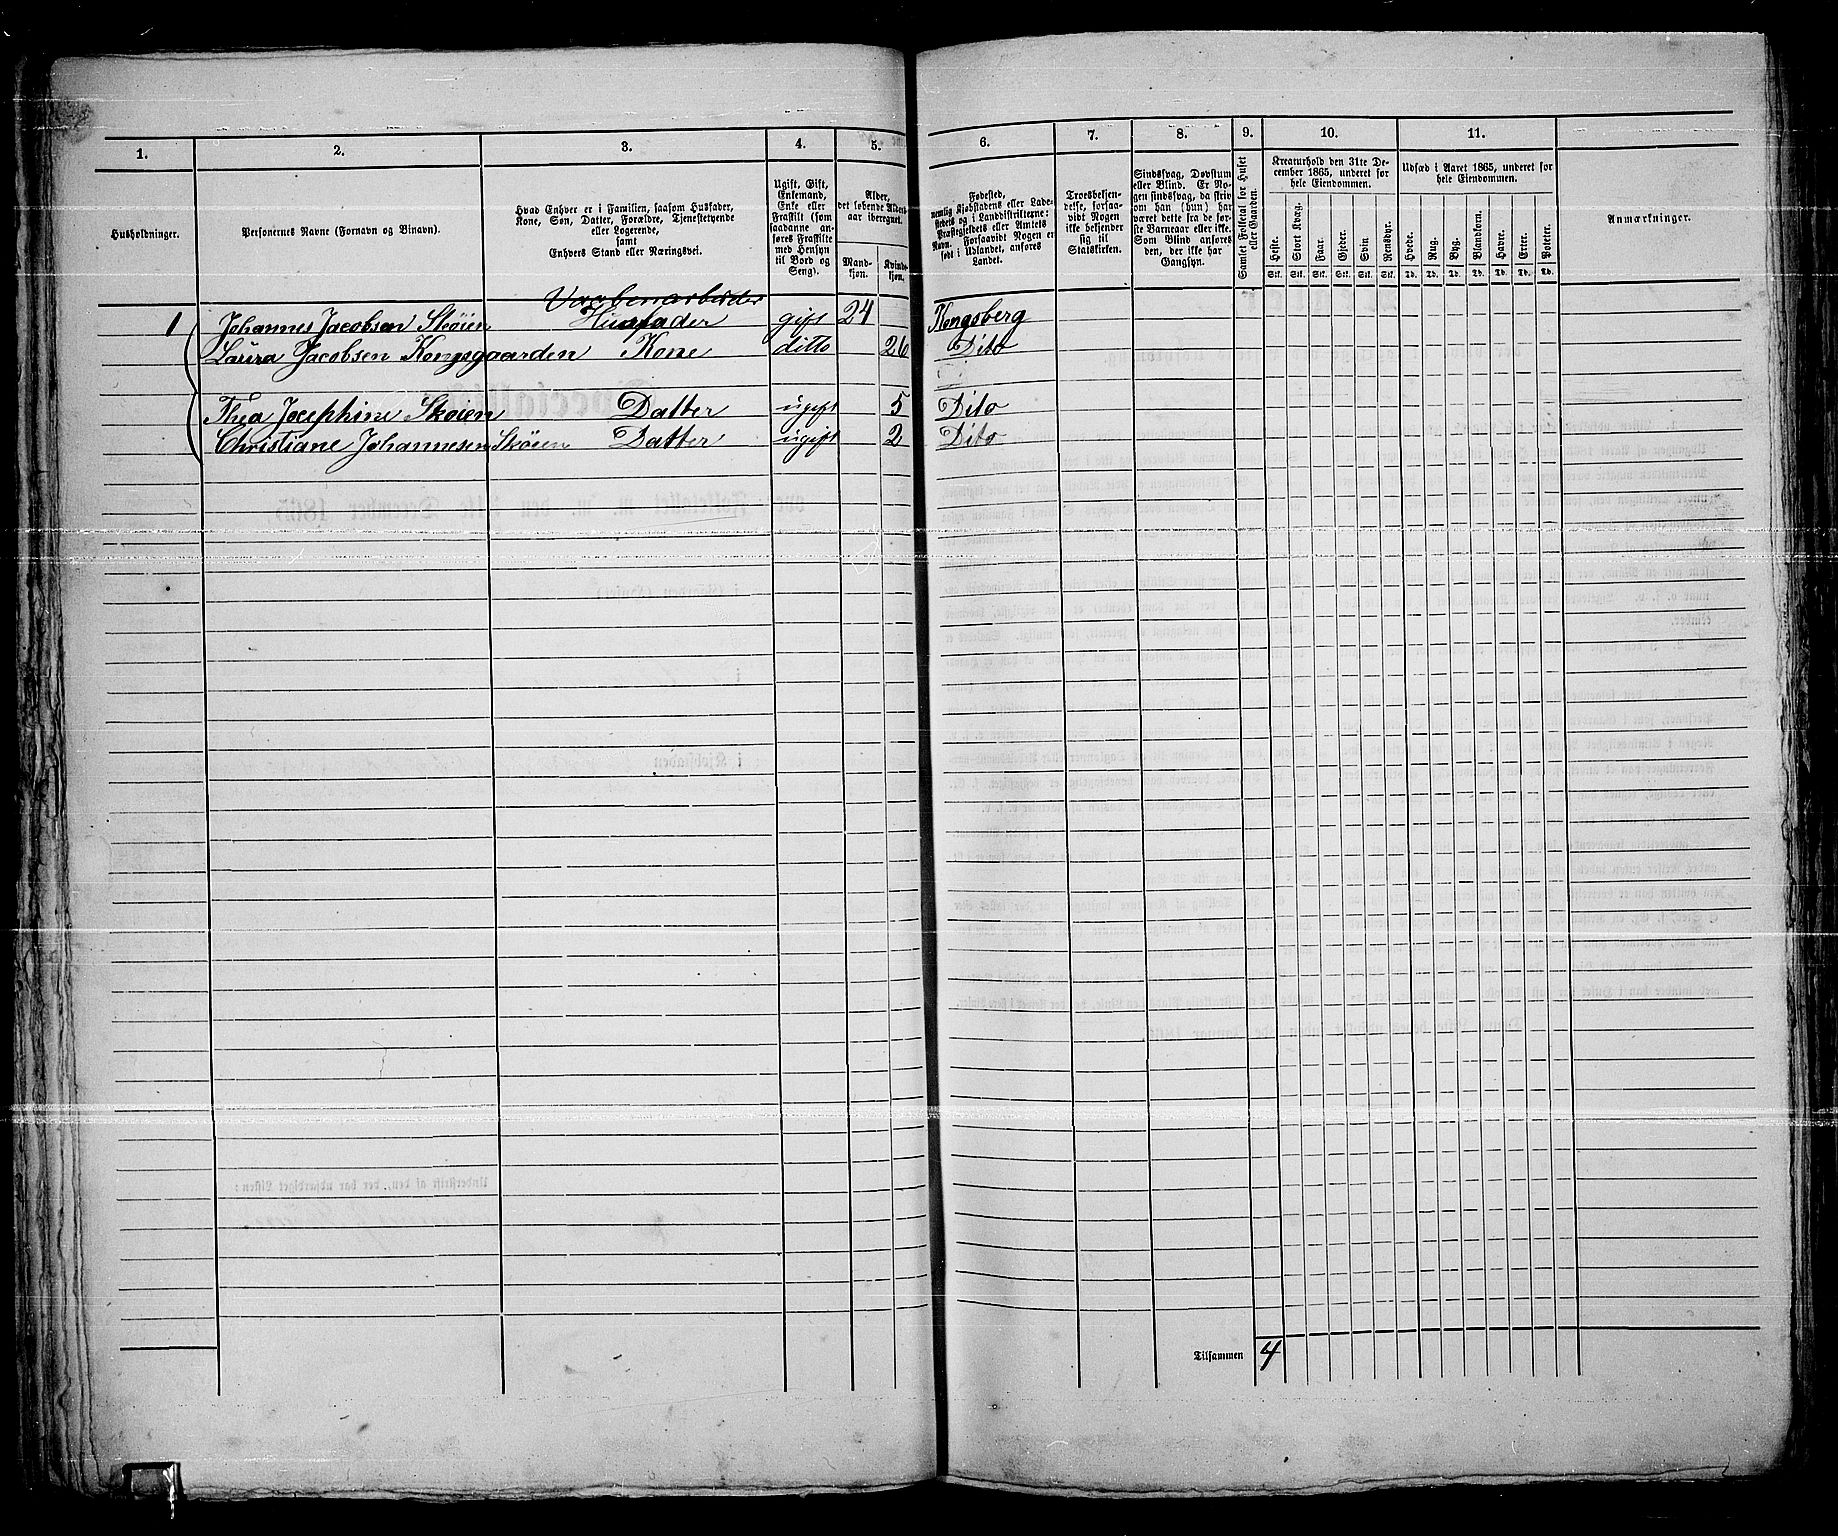 1.
2.
3.
4.
5.
6.
7.
8.
9.
10.
11.
Husholdninger.
Personernes Navne (Fornavn og Binavn).
Hvad Enhver er i Familien, saasom Husfader,
Kone, Søn, Datter, Forældre, Tjenestetyende
eller Logerende,
samt
Enhvers Stand eller Næringsvei.
Ugift, Gift,
Enkemand,
Enke eller
Fraskilt (som
saadanne an-
føres Fraskilte
med Hensyn
til Bord og
Seng).
Alder,
det løbende Alders-
aar iberegnet.
Mand-
kjøn.
Kvinde-
kjøn.
Fødested,
nemlig Kjøbstadens eller Lade-
stedets og i Landdistrikterne:
Præstegjeldets eller Amtets
Navn. Forsaavidt Nogen er
født i Udlandet, anføres
Landet.
Troesbekjen-
delse, forsaa-
vidt Nogen
ikke bekjender
sig til
Statskirken.
Sindssvag, Døvstum
eller Blind. Er No-
gen sindssvag, da skriv
om han (hun) har
været dette fra de før-
ste Barneaar eller ikke.
Som Blind anføres
den, der ikke har
Gangsyn.
Samlet Folketal for Huset
eller Gaarden.
Kreaturhold den 31te De-
cember 1865, underet for
hele Eiendommen.
Heste.
Stort Kvæg.
Faar.
Gjeder.
Svin
Rensdyr.
Stk. Stk. Stk. Stk. Stk. Stk.
Udsæd i Aaret 1865, underet for
hele Eiendommen.
Hvede.
Rug.
Byg.
Blandkorn.
Havre.
Erter.
Poteter.
Td. Td. Td. Td. Td. Td. Td.
Anmærkninger.
Vaabenarbeider
1 Johannes Jacobsen Skøien Husfader gift 24 Kongsberg
Laura Jacobsen Kongsgaarden Kone ditto 26 Dito
Thea Josephine Skøien Datter ugift 5 Dito
Christiane Johannesen Skøien Datter ugift 2 Dito
Tilsammen 4